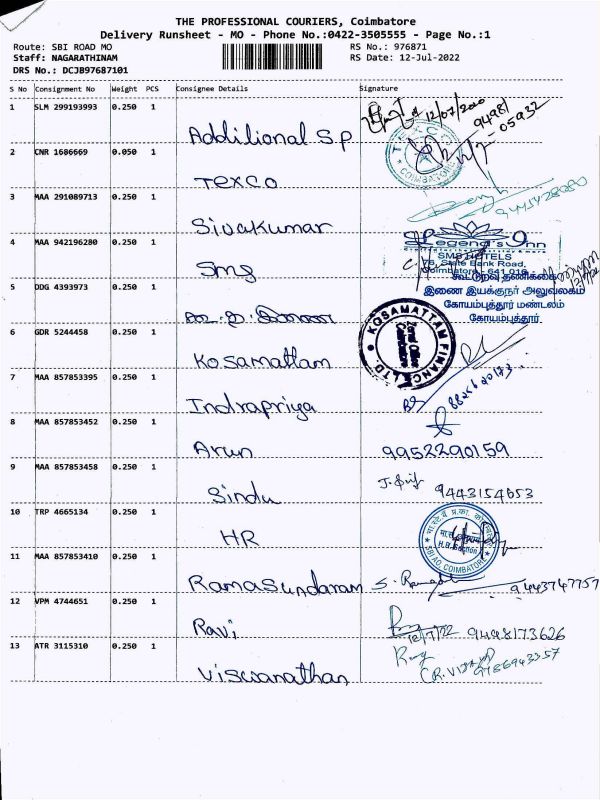 THE PROFESSIONAL COURIERS, Coimbatore
Delivery Runsheet - MO - Phone No.:0422-3505555 - Page No.:1
Route: SBI ROAD MO
RS No.: 976871
Staff: NAGARATHINAM
RS Date: 12-Jul-2022
DRS No.: DCJB97687101
S No Consignment No Weight PCS Consignee Details Signature
1 SLM 299193993 0.250 1
12/07/2020
94981
05932
Additional S.P
2 CNR 1686669 0.050 1
TEXCO
COIMBATORE
Texco
3 MAA 291089713 0.250 1
9445428080
Sivakumar
4 MAA 942196280 0.250 1
Legend's Inn
SMS HOTELS
76, State Bank Road,
Coimbatore - 641 018
Sms
5 DDG 4393973 0.250 1
கூட்டுறவு தணிக்கை
இணை இயக்குநர் அலுவலகம்
கோயம்புத்தூர் மண்டலம்
கோயம்புத்தூர்
6 GDR 5244458 0.250 1
KOSAMATTAM FINANCE LTD
Kosamattam
7 MAA 857853395 0.250 1
Indrapriya
8 MAA 857853452 0.250 1
Arun 9952290159
9 MAA 857853458 0.250 1
9443154653
Sindu
10 TRP 4665134 0.250 1
H.R. Section
SBI AO, COIMBATORE
HR
11 MAA 857853410 0.250 1
Ramasundaram
9443747757
12 VPM 4744651 0.250 1
12/7/22 9498173626
Ravi
13 ATR 3115310 0.250 1
9786943357
Viswanathan